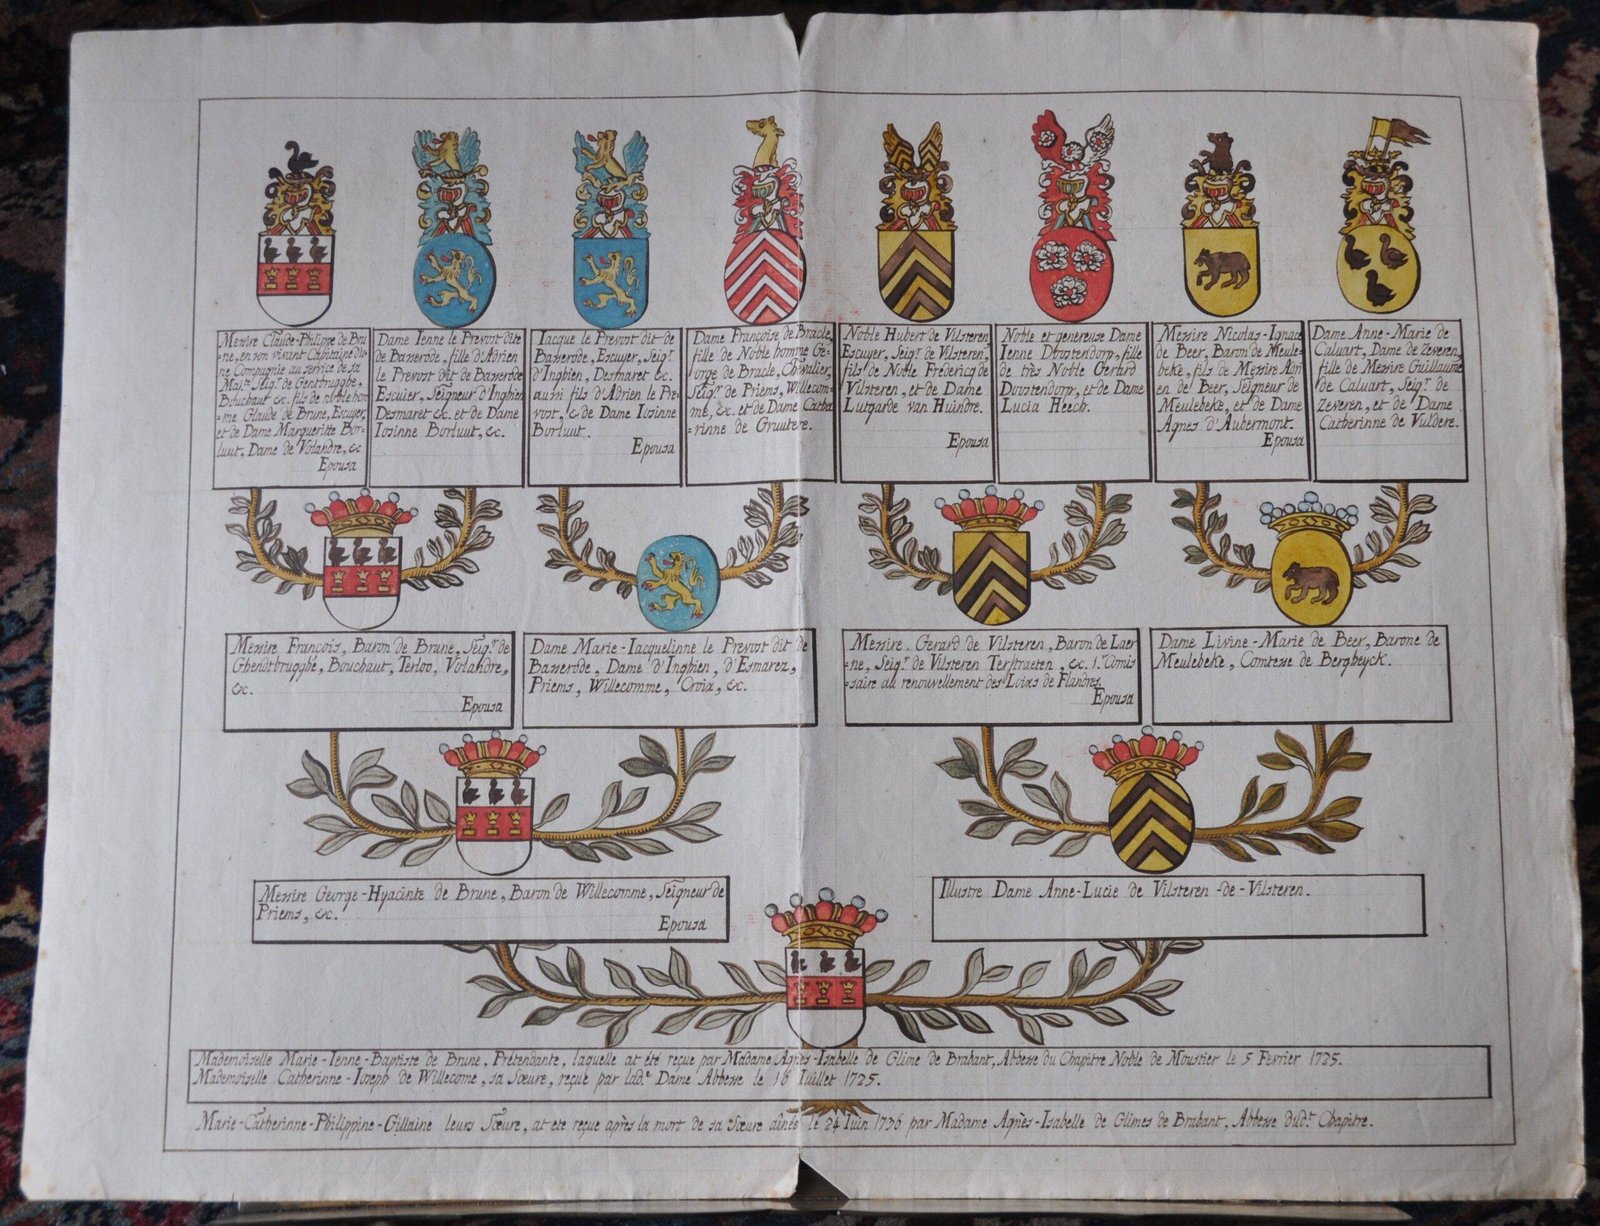 Messire Claude-Philippe de Bru=
=ne, en son vivant Capitaine d'u=
ne Compagnie au service de sa
Maj.té Seig.r de Gentbrugghe,
Bouchaut &c. fils de noble hom=
=me Glaude de Brune, Escuyer,
et de Dame Margueritte Bor=
luut, Dame de Volandre, &c.
Epousa
Dame Ienne le Prevost dite
de Basserode, fille d'Adrien
le Prevost dit de Basserode
Escuier, Seigneur d'Inghien
Desmaret &c. et de Dame
Iosinne Borluut, &c.
Iacque le Prevost dit de
Basserode, Escuyer, Seig.r
d'Inghien, Desmaret &c.
aussi fils d'Adrien le Pre
vost, & de Dame Iosinne
Borluut.
Epousa
Dame Françoise de Bracle,
fille de Noble homme Ge=
=orge de Bracle, Chevalier,
Seig.r de Priems, Willecom=
=me, &c. et de Dame Catha
=rinne de Gruutere.
Noble Hubert de Vilsteren
Escuyer, Seig.r de Vilsteren,
fils de Noble Fredericq de
Vilsteren, et de Dame
Lutgarde van Huindre.
Epousa
Noble et genereuse Dame
Ienne Doostendorp, fille
de très Noble Gerard
Doostendorp, et de Dame
Lucia Heech.
Messire Nicolas-Ignace
de Beer, Baron de Meule=
beke, fils de Messire Adri
en de Beer, Seigneur de
Meulebeke, et de Dame
Agnes d'Aubermont.
Epousa
Dame Anne-Marie de
Caluart, Dame de Zeveren,
fille de Messire Guillaume
de Caluart, Seig.r de
Zeveren, et de Dame
Catherinne de Vuldere.
Messire François, Baron de Brune, Seig.r de
Ghendtbrugghe, Bouchaut, Terloo, Volandre,
&c.
Epousa
Dame Marie-Iacquelinne le Prevost dit de
Basserode, Dame d'Inghien, d'Esmarez,
Priems, Willecomme, Croix, &c.
Messire Gerard de Vilsteren, Baron de Laer=
=ne, Seig.r de Vilsteren Terstraeten, &c. 1.r Comis
=saire au renouvellement des Loixs de Flandres.
Epousa
Dame Livine-Marie de Beer, Barone de
Meulebeke, Comtesse de Bergheyck.
Messire George-Hyacinte de Brune, Baron de Willecomme, Seigneur de
Priems, &c.
Epousa
Illustre Dame Anne-Lucie de Vilsteren-de-Vilsteren.
Mademoiselle Marie-Ienne-Baptiste de Brune, Prétendante, laquelle at été reçue par Madame Agnes-Isabelle de Glime de Brabant, Abbesse du Chapitre Noble de Moustier le 5 Février 1725.
Mademoiselle Catherinne-Ioseph de Willecome, sa Sœure, reçue par lad.e Dame Abbesse le 16 Iuillet 1725.
Marie-Catherinne-Philippine-Gillaine leurs Sœure, at eté reçue après la mort de sa Sœure aînée le 24 Iuin 1736 par Madame Agnès-Isabelle de Glimes de Brabant, Abbesse dud.t Chapitre.